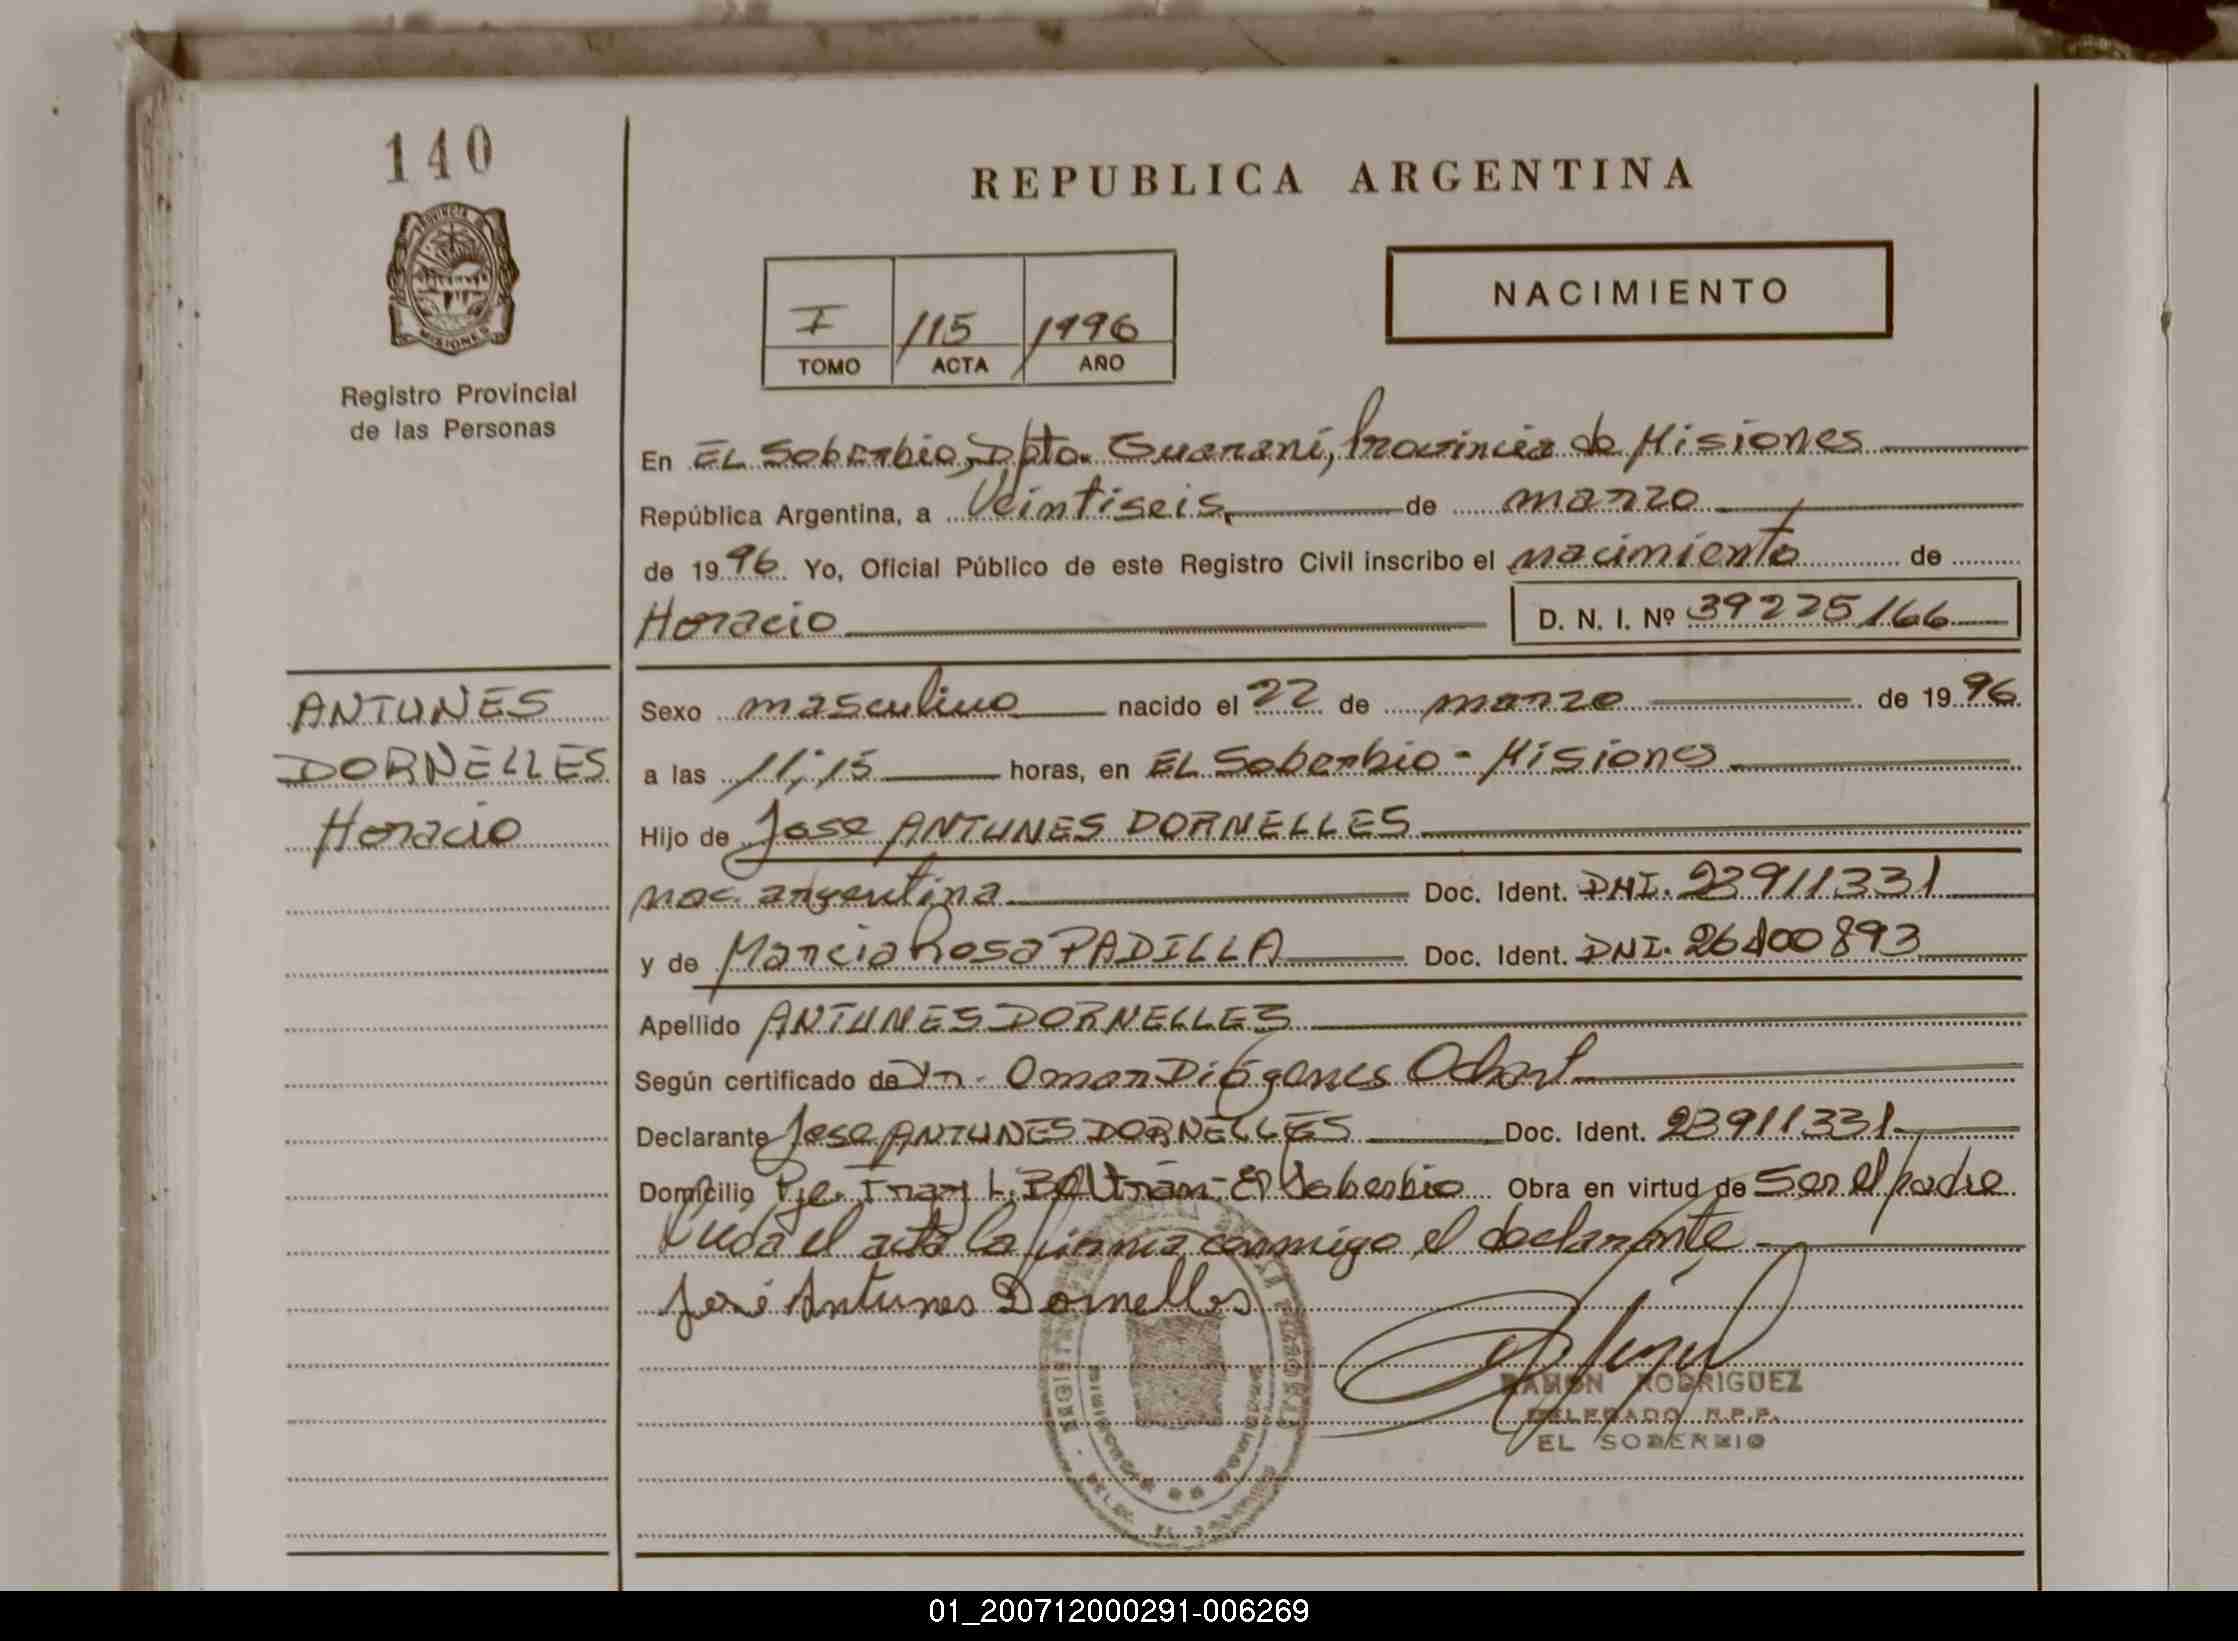 140
PROVINCIA DE
MISIONES
Registro Provincial
de las Personas
REPUBLICA ARGENTINA
I 115 1996
TOMO ACTA AÑO
NACIMIENTO
En EL Soberbio, Dpto. Guaraní, Provincia de Misiones
República Argentina, a Veintiseis, de marzo
de 1996. Yo, Oficial Público de este Registro Civil inscribo el nacimiento de
Horacio D. N. I. Nº 39225166
ANTUNES
DORNELLES
Horacio
Sexo masculino nacido el 22 de marzo de 1996.
a las 11;15 horas, en EL Soberbio - Misiones
Hijo de Jose ANTUNES DORNELLES
nac. argentina Doc. Ident. DNI. 23911331
y de Marcia Rosa PADILLA Doc. Ident. DNI. 26100893
Apellido ANTUNES DORNELLES
Según certificado de Dr. Omar Diógenes
Declarante Jose ANTUNES DORNELLES Doc. Ident. 23911331
Domicilio Pje. Fray L. Beltrán - El Soberbio Obra en virtud de Ser el padre
el acta la firma conmigo el declarante
José Antunes Dornelles
RAMON RODRIGUEZ
DELEGADO R.P.P.
EL SOBERBIO
01_200712000291-006269